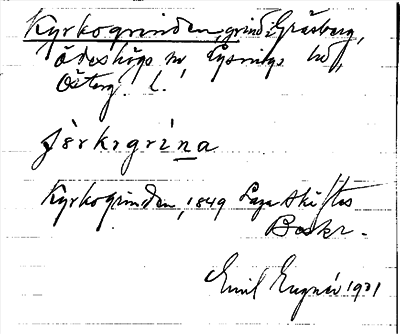 Kyrkogrinden, grind i Gräsberg,
Ödeshögs sn, Lysings hd,
Österg. l.
jèrkrgrìna
Kyrkogrinden, 1849 Laga Skiftes
Beskr.
Emil Eugnér 1931